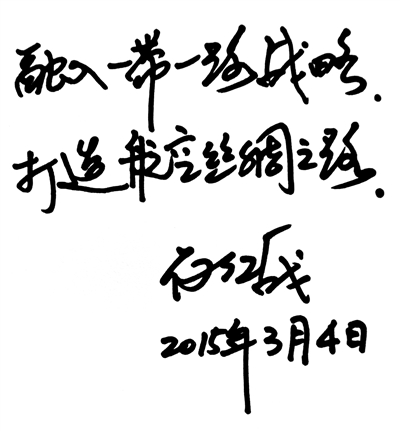 融入一带一路战略.
打造航空丝绸之路.
2015年3月4日